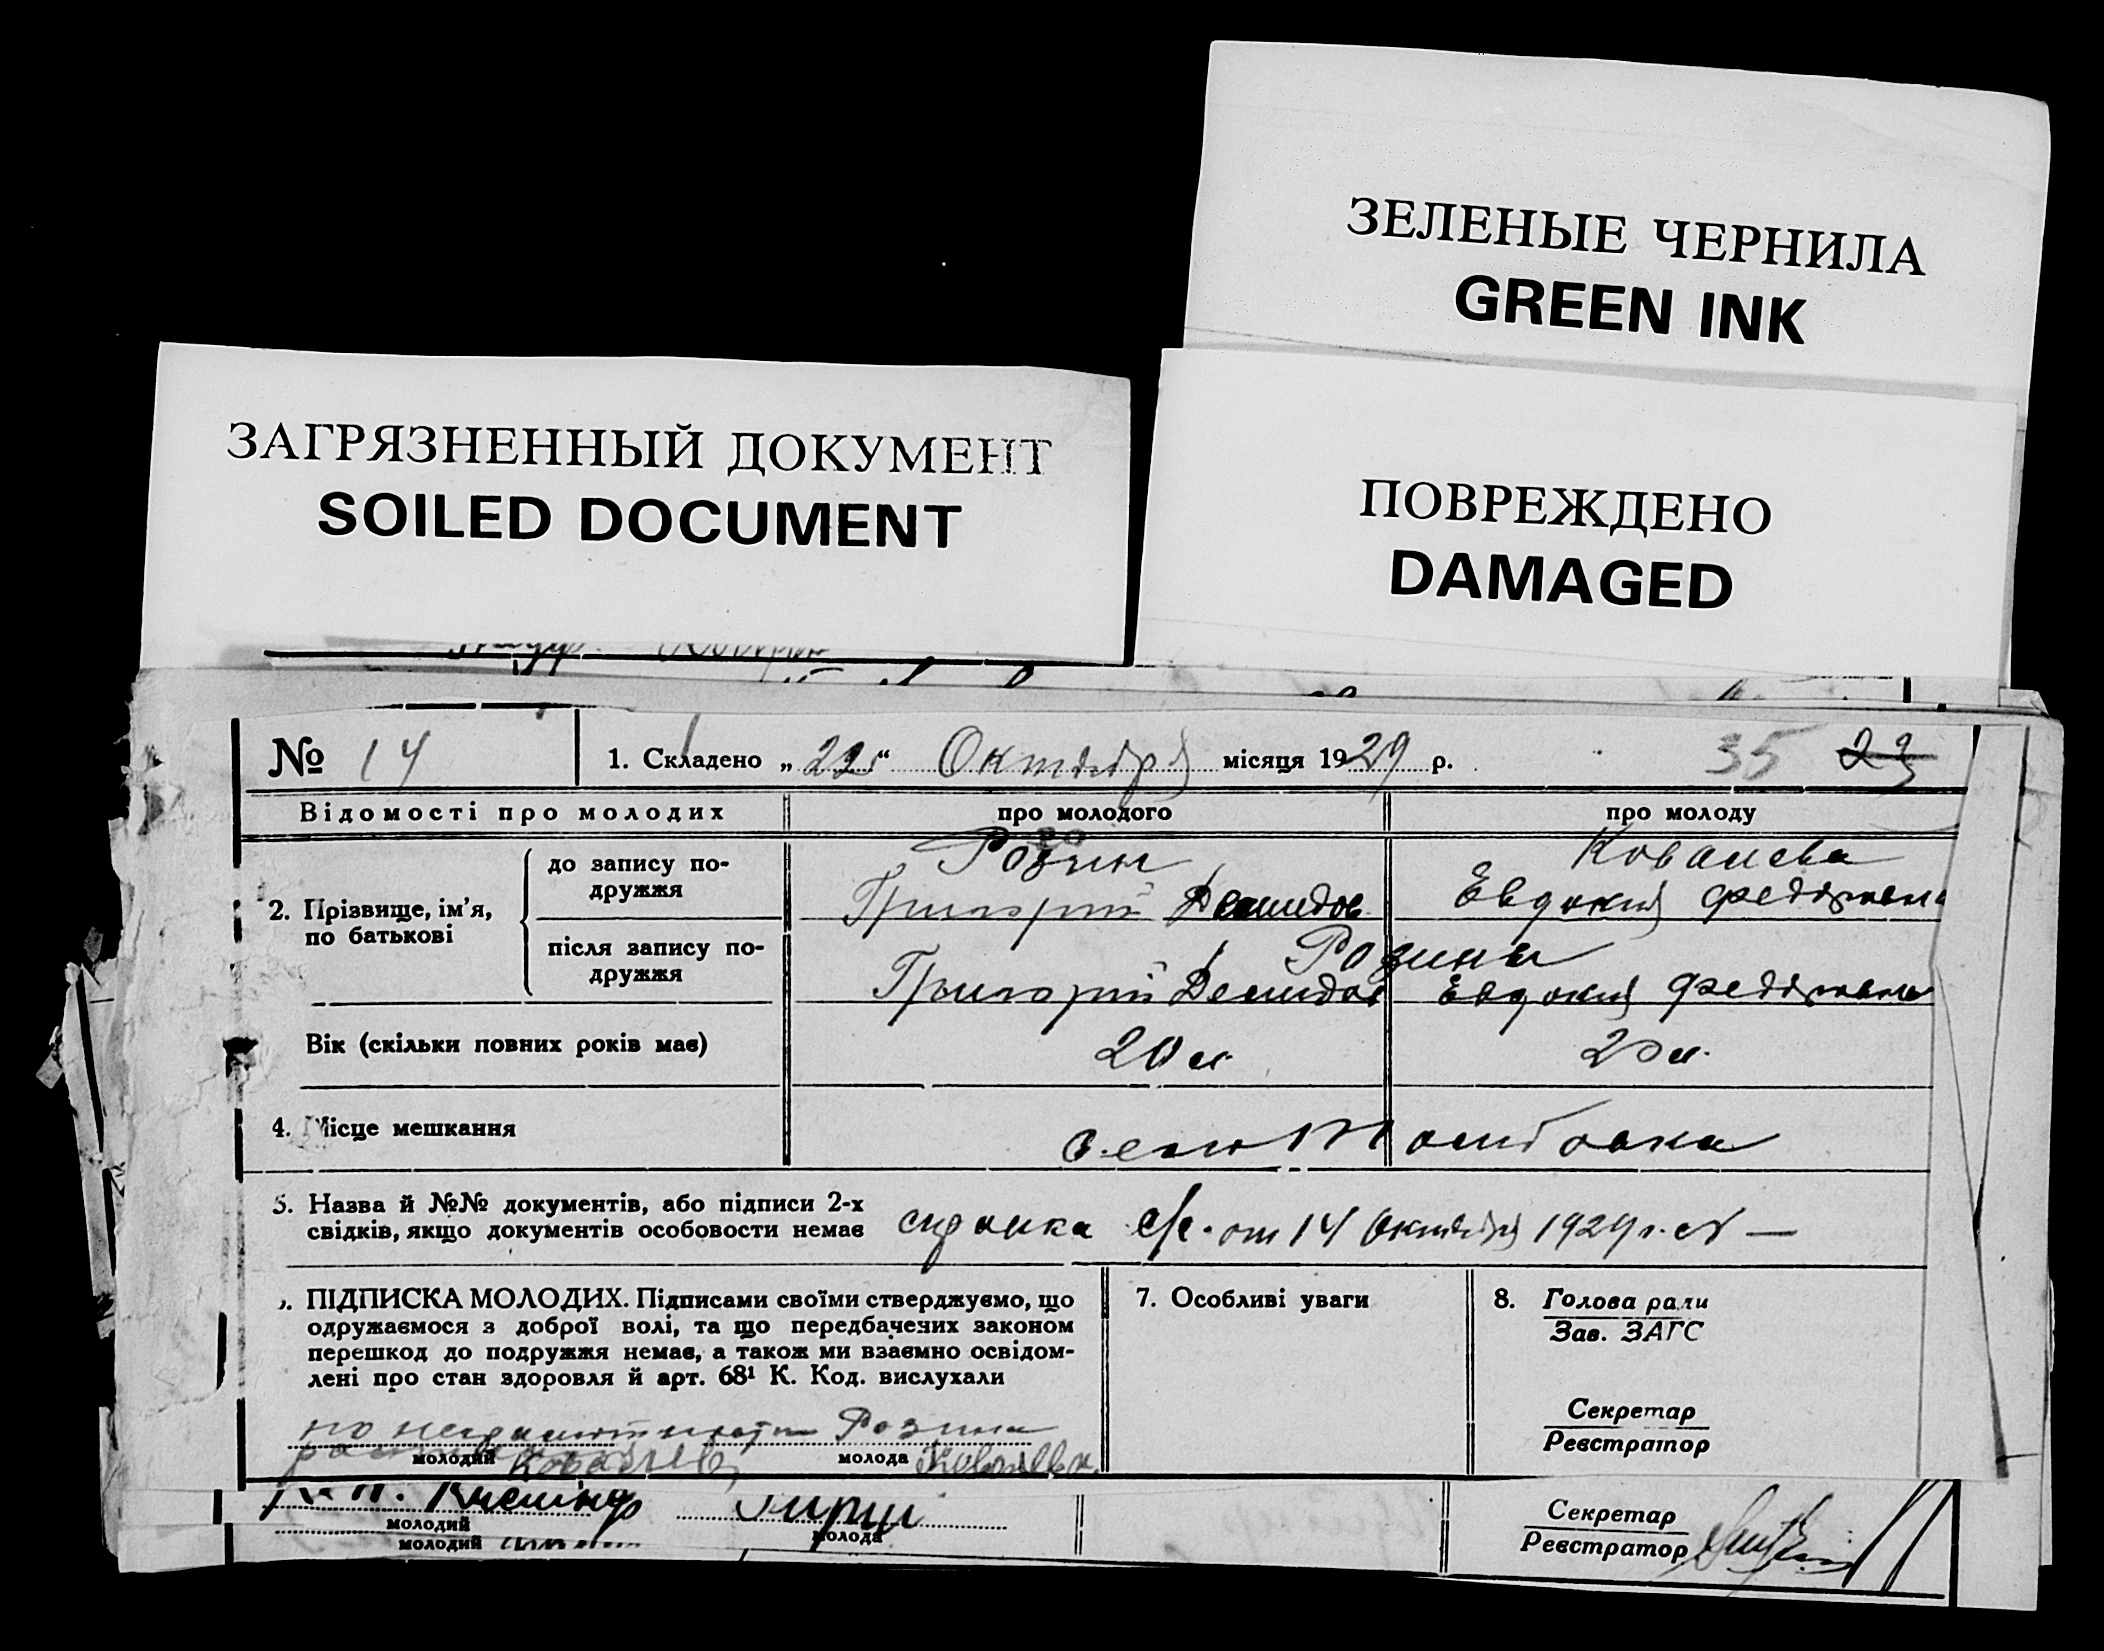 ЗЕЛЕНЫЕ ЧЕРНИЛА
GREEN INK
ЗАГРЯЗНЕННЫЙ ДОКУМЕНТ
SOILED DOCUMENT
ПОВРЕЖДЕНО
DAMAGED
№ 14 1. Складено „22“ Октября місяця 1929 р. 35 23
Відомості про молодих про молодого про молоду
2. Прізвище, ім'я, по батькові
до запису подружжя
Розин
Григорий Демидов
Ковалева
Евдокия
після запису подружжя
Розины
Григорий Демидов Евдокия
Вік (скільки повних років має) 20 л. 20 л.
4. Місце мешкання село
5. Назва й №№ документів, або підписи 2-х
свідків, якщо документів особовости немає
справка с/с. от 14 Октября 1929 г. № —
ПІДПИСКА МОЛОДИХ. Підписами своїми стверджуємо, що
одружаємося з доброї волі, та що передбачених законом
перешкод до подружжя немає, а також ми взаємно освідом-
лені про стан здоровля й арт. 68¹ К. Код. вислухали
по неграмотности Розина
молодий молода
7. Особливі уваги
8. Голова ради
Зав. ЗАГС
Секретар
Реєстратор
молодий молода
молодий
Секретар
Реєстратор